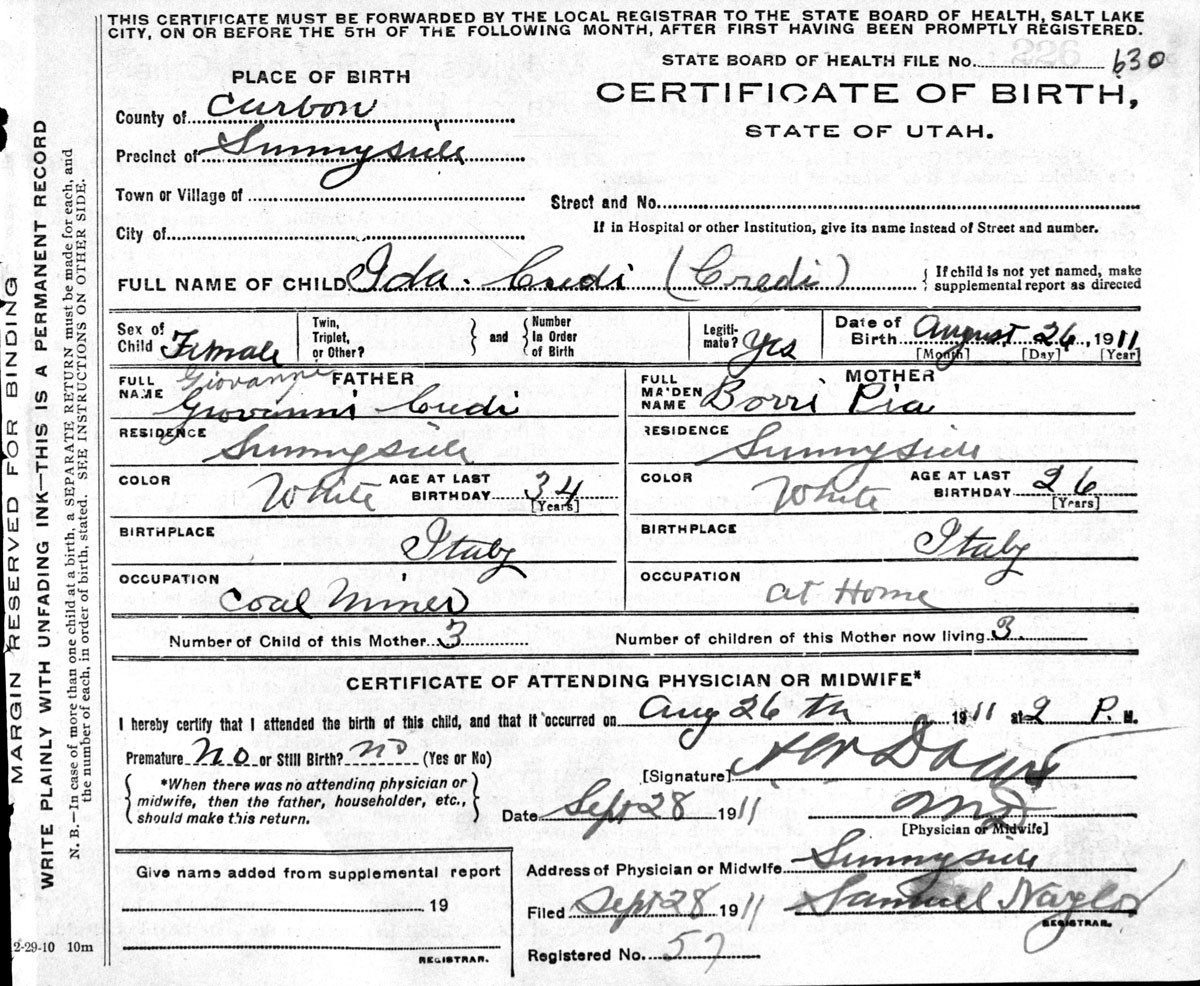 THIS CERTIFICATE MUST BE FORWARDED BY THE LOCAL REGISTRAR TO THE STATE BOARD OF HEALTH, SALT LAKE
CITY, ON OR BEFORE THE 5TH OF THE FOLLOWING MONTH, AFTER FIRST HAVING BEEN PROMPTLY REGISTERED.
STATE BOARD OF HEALTH FILE No. 630
PLACE OF BIRTH
CERTIFICATE OF BIRTH,
STATE OF UTAH.
County of Carbon
Precinct of Sunnyside
Town or Village of
Street and No.
City of
If in Hospital or other Institution, give its name instead of Street and number.
FULL NAME OF CHILD Ida Credi (Credi) { If child is not yet named, make
supplemental report as directed
Sex of Child Female
Twin, Triplet, or Other? } and { Number In Order of Birth
Legiti-mate? Yes
Date of Birth August 26, 1911
[Month] [Day] [Year]
FATHER
FULL NAME Giovanni
Giovanni Credi
RESIDENCE Sunnyside
COLOR White AGE AT LAST BIRTHDAY 34
[Years]
BIRTHPLACE Italy
OCCUPATION Coal Miner
MOTHER
FULL MAIDEN NAME Borri Pia
RESIDENCE Sunnyside
COLOR White AGE AT LAST BIRTHDAY 26
[Years]
BIRTHPLACE Italy
OCCUPATION at Home
Number of Child of this Mother 3 Number of children of this Mother now living 3
CERTIFICATE OF ATTENDING PHYSICIAN OR MIDWIFE*
I hereby certify that I attended the birth of this child, and that it occurred on Aug 26th 1911 at 2 P. M.
Premature No or Still Birth? no (Yes or No)
[Signature]
{ *When there was no attending physician or
midwife, then the father, householder, etc.,
should make this return. }
Date Sept 28 1911 MD
[Physician or Midwife]
Address of Physician or Midwife Sunnyside
Filed Sept 28 1911 Samuel Naylor
REGISTRAR.
Registered No. 57
Give name added from supplemental report
19
REGISTRAR.
2-29-10 10m
MARGIN RESERVED FOR BINDING
WRITE PLAINLY WITH UNFADING INK—THIS IS A PERMANENT RECORD
N. B.—In case of more than one child at a birth, a SEPARATE RETURN must be made for each, and
the number of each, in order of birth, stated. SEE INSTRUCTIONS ON OTHER SIDE.